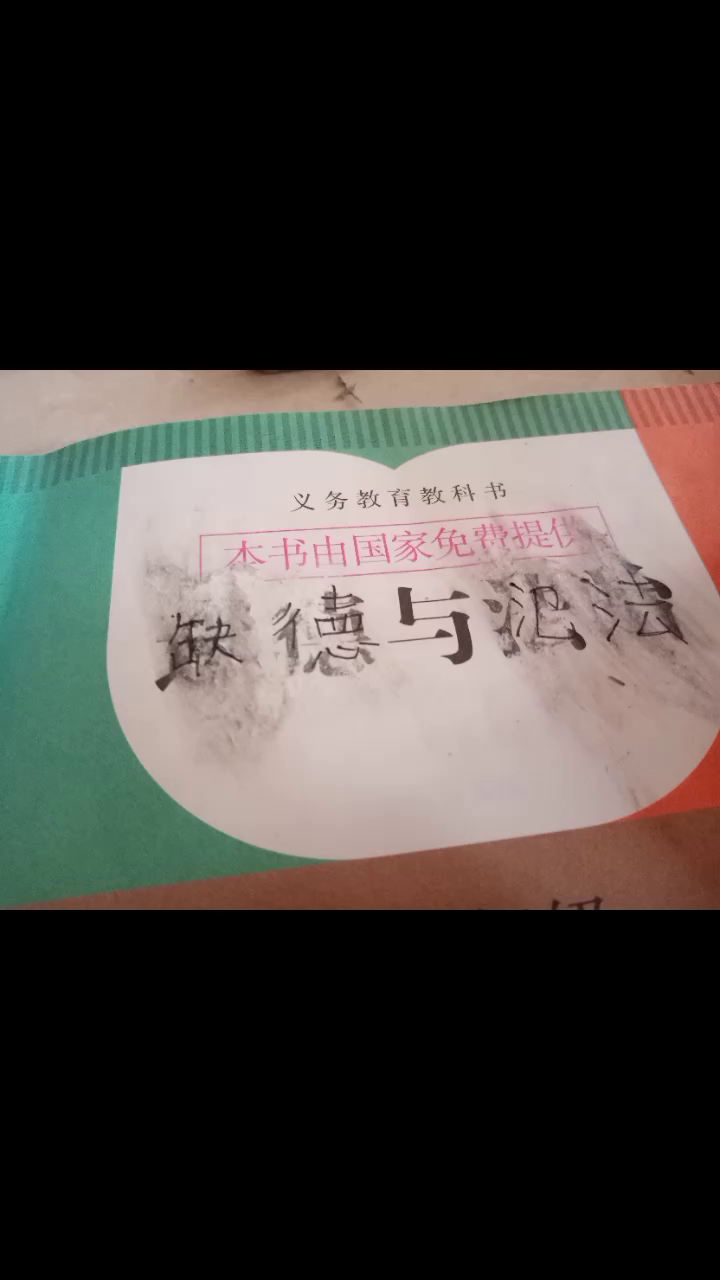 义务教育教科书
本书由国家免费提供
缺德与犯法